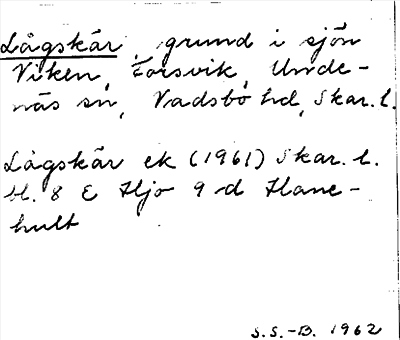 Lågskär, grund i sjön
Viken, Forsvik, Unde-
näs sn, Vadsbo hd, Skar. l.
Lågskär ek (1961) Skar. l.
bl. 8 E Hjo 9 d Hane-
hult
S.S.-B. 1962